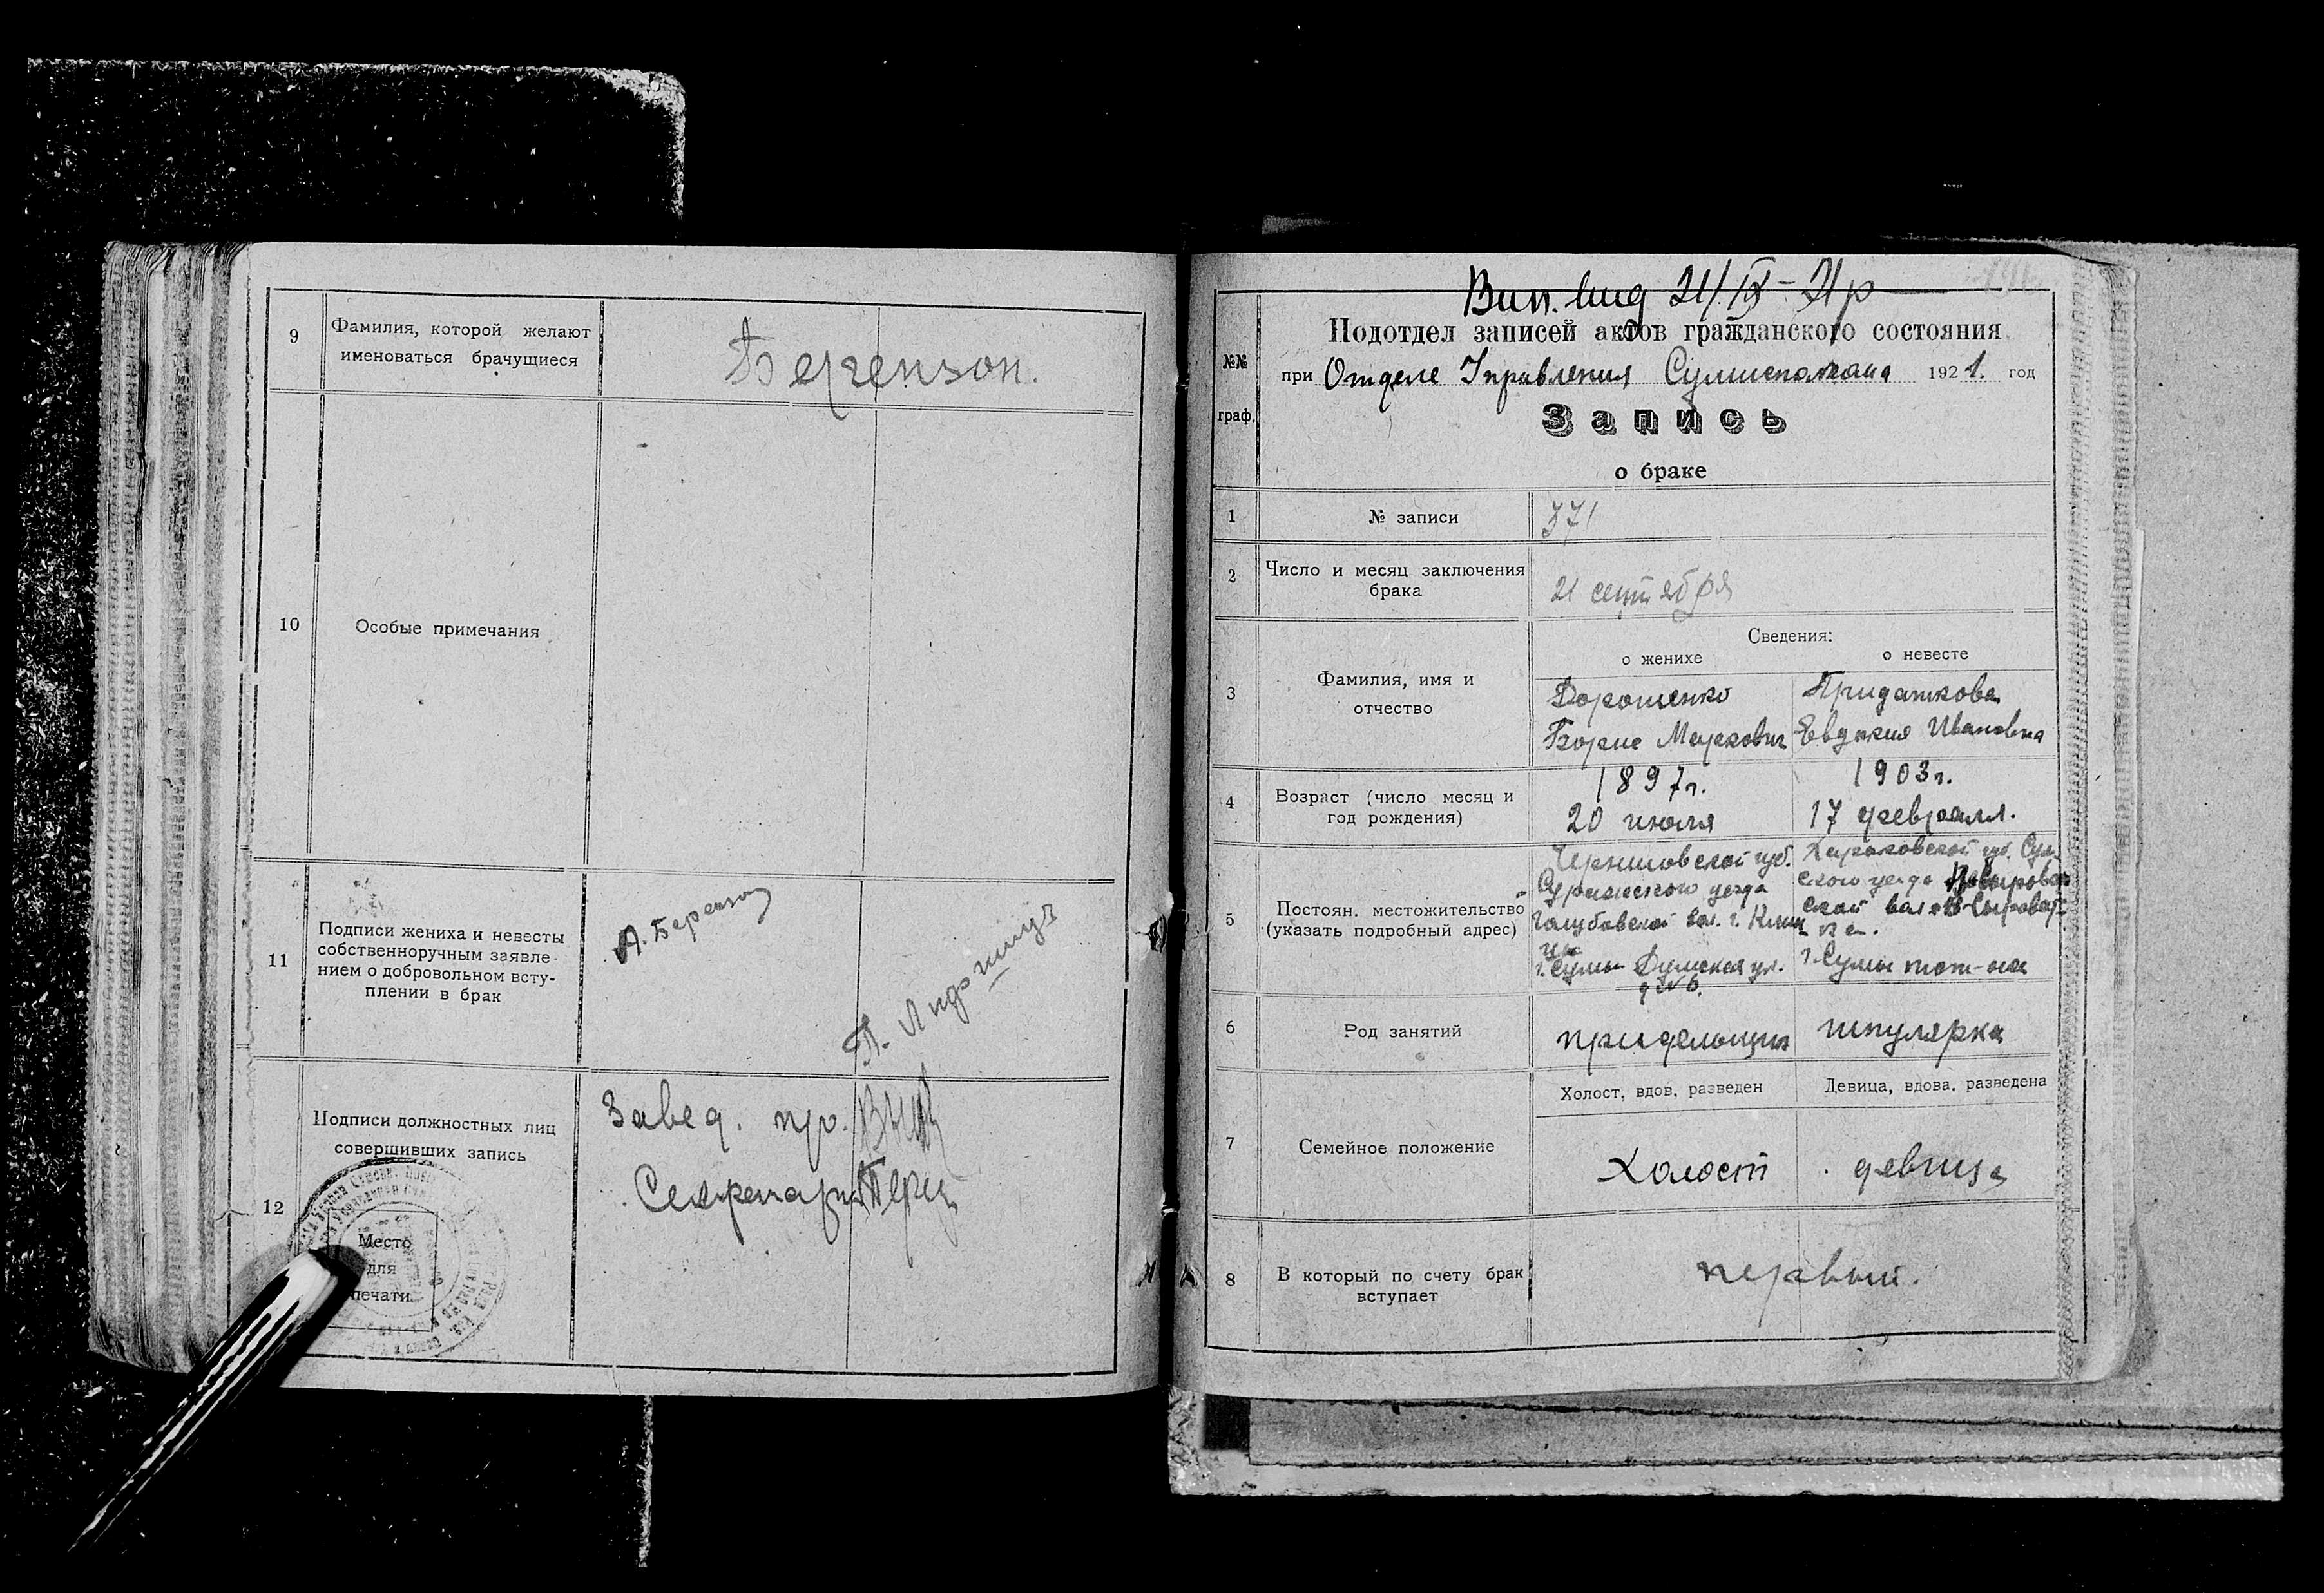 9
Фамилия, которой желают
именоваться брачущиеся
Бергензон.
10
Особые примечания
11
Подписи жениха и невесты
собственноручным заявле-
нием о добровольном всту-
плении в брак
А. Бергензон
П. Лифшиц
12
Подписи должностных лиц
совершивших запись
Завед. пр.
Секретарь
Место
для
печати
Вип. 21/IX-21р
Подотдел записей актов гражданского состояния
№№
граф.
при Отделе Управления 1921. год
Запись
о браке
1
№ записи
371
2
Число и месяц заключения
брака
21 сентября
Сведения:
о женихе
о невесте
3
Фамилия, имя и
отчество
Дорошенко
Борис Маркович
Придаткова
Евдокия Ивановна
4
Возраст (число месяц и
год рождения)
1897г.
20 июля
1903г.
17 февраля.
5
Постоян. местожительство
(указать подробный адрес)
Черниговской губ.
Суражского уезда
Голубовской вол. г. Клин
цы
г. Сумы Думская ул.
д № 6.
Харьковской губ. Сум
ского уезда
ской вол. Сыроват
ка.
г. Сумы
6
Род занятий
придельщик
шпулярка
7
Семейное положение
Холост, вдов, разведен
Девица, вдова, разведена
Холост
девица
8
В который по счету брак
вступает
первый.